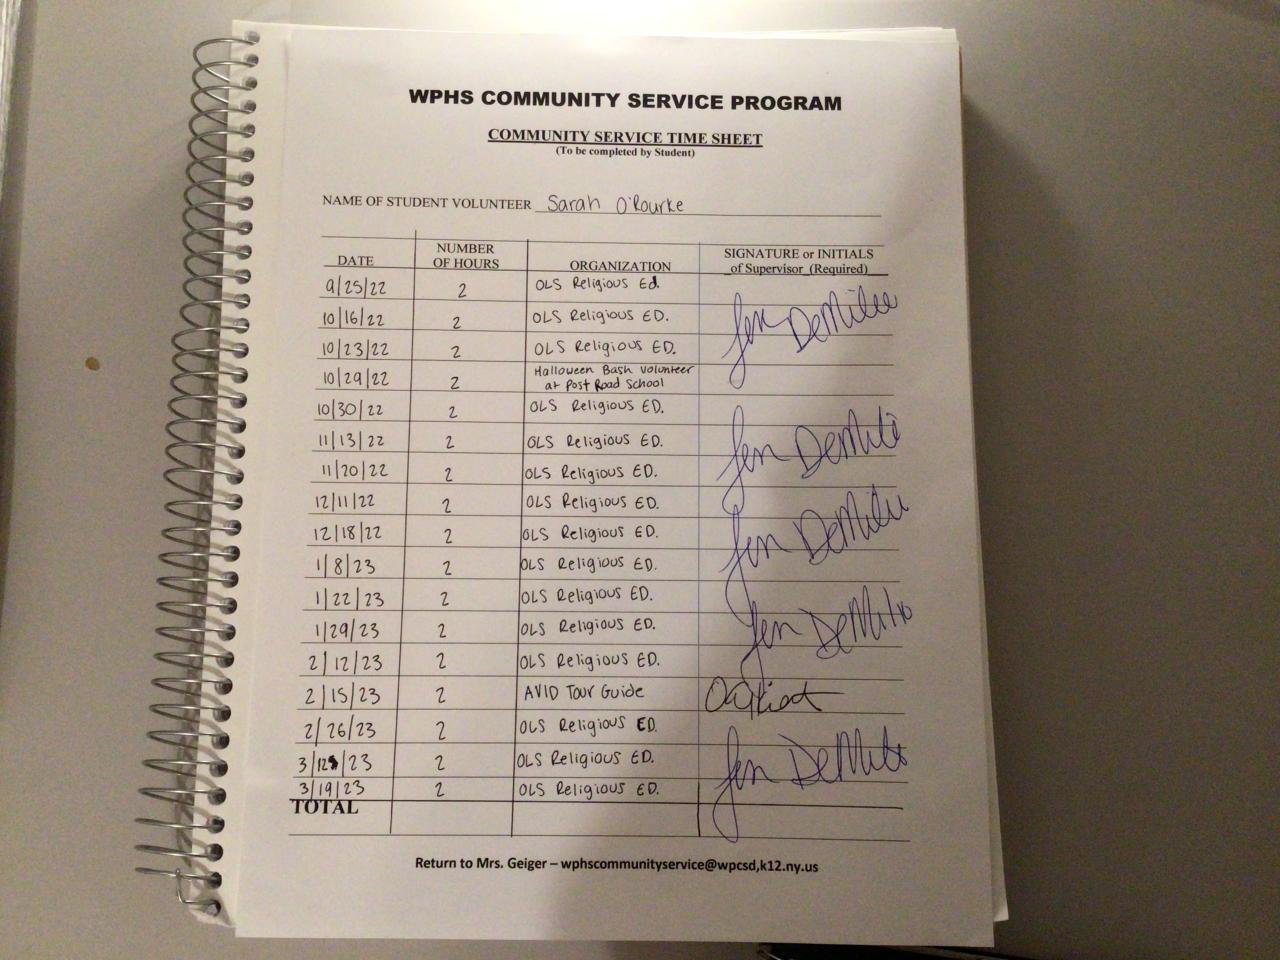 WPHS COMMUNITY SERVICE PROGRAM
COMMUNITY SERVICE TIME SHEET
(To be completed by Student)
NAME OF STUDENT VOLUNTEER Sarah O'Rourke
DATE NUMBER OF HOURS ORGANIZATION SIGNATURE or INITIALS of Supervisor (Required)
9/25/22 2 OLS Religious Ed.
10/16/22 2 OLS Religious ED. Jen DeMilee
10/23/22 2 OLS Religious ED.
10/29/22 2 Halloween Bash Volunteer at Post Road School
10/30/22 2 OLS Religious ED.
11/13/22 2 OLS Religious ED. Jen DeMile
11/20/22 2 OLS Religious ED.
12/11/22 2 OLS Religious ED.
12/18/22 2 OLS Religious ED. Jen DeMile
1/8/23 2 OLS Religious ED.
1/22/23 2 OLS Religious ED.
1/29/23 2 OLS Religious ED. Jen DeMile
2/12/23 2 OLS Religious ED.
2/15/23 2 AVID Tour Guide
2/26/23 2 OLS Religious ED.
3/12/23 2 OLS Religious ED. Jen DeMile
3/19/23 2 OLS Religious ED.
TOTAL
Return to Mrs. Geiger – wphscommunityservice@wpcsd,k12.ny.us